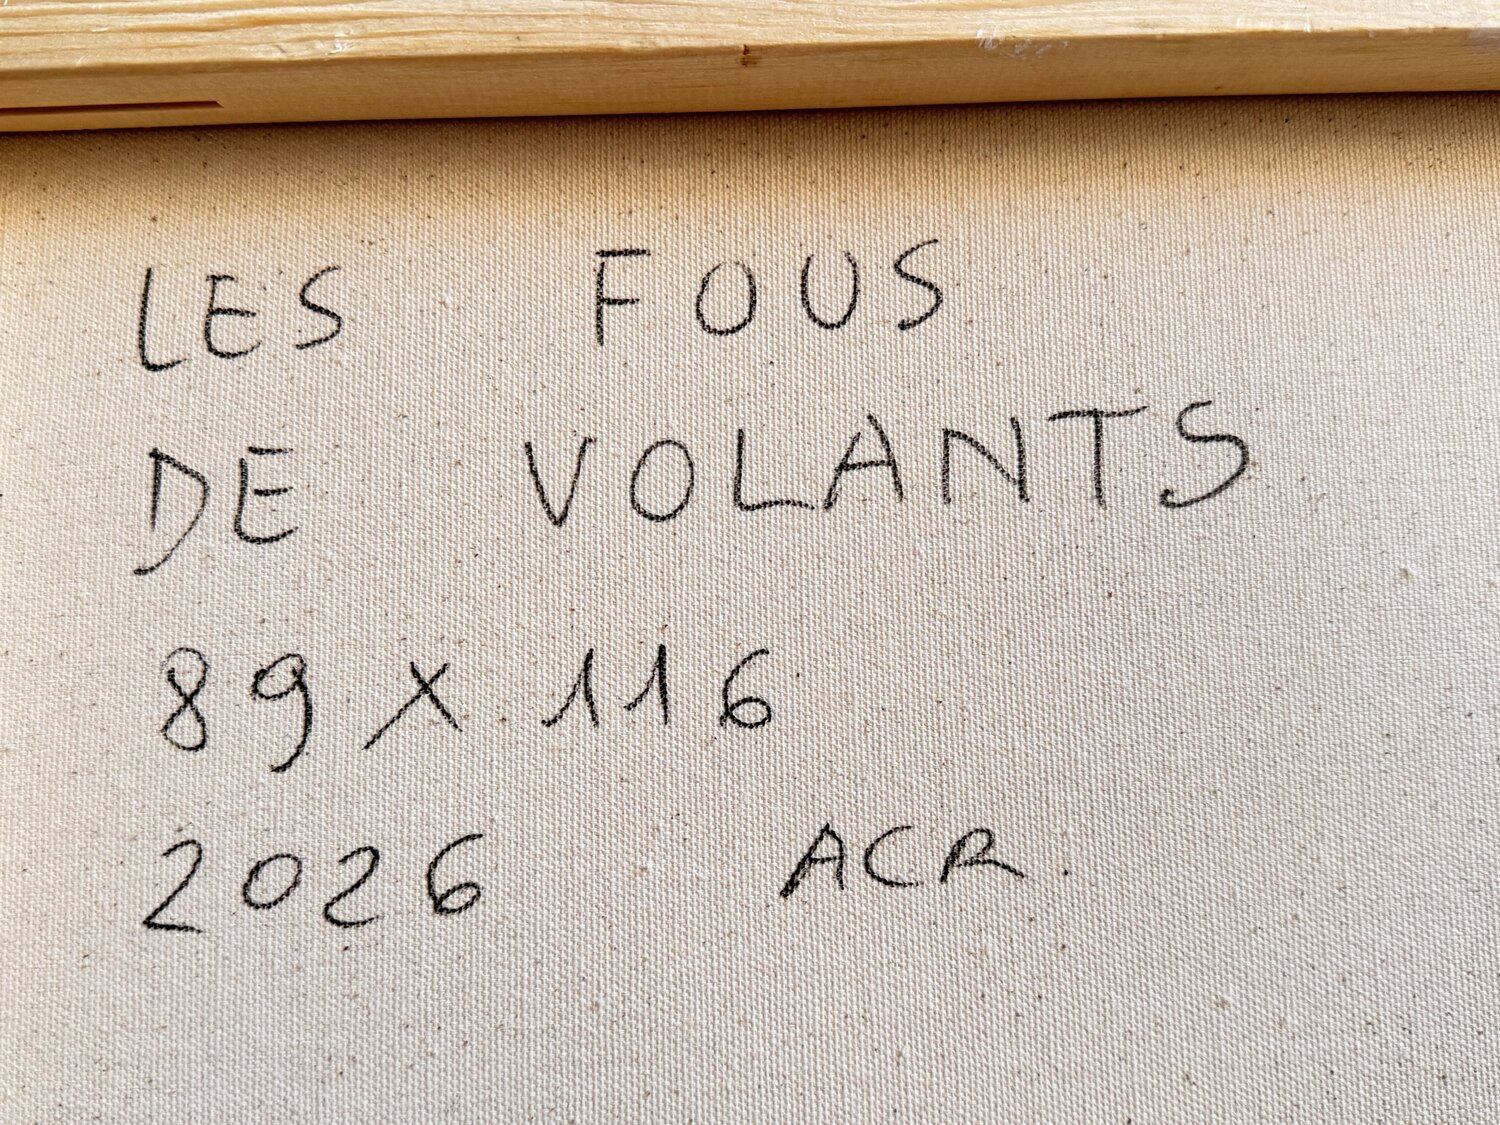 LES FOUS
DE VOLANTS
89 x 116
2026 ACR.